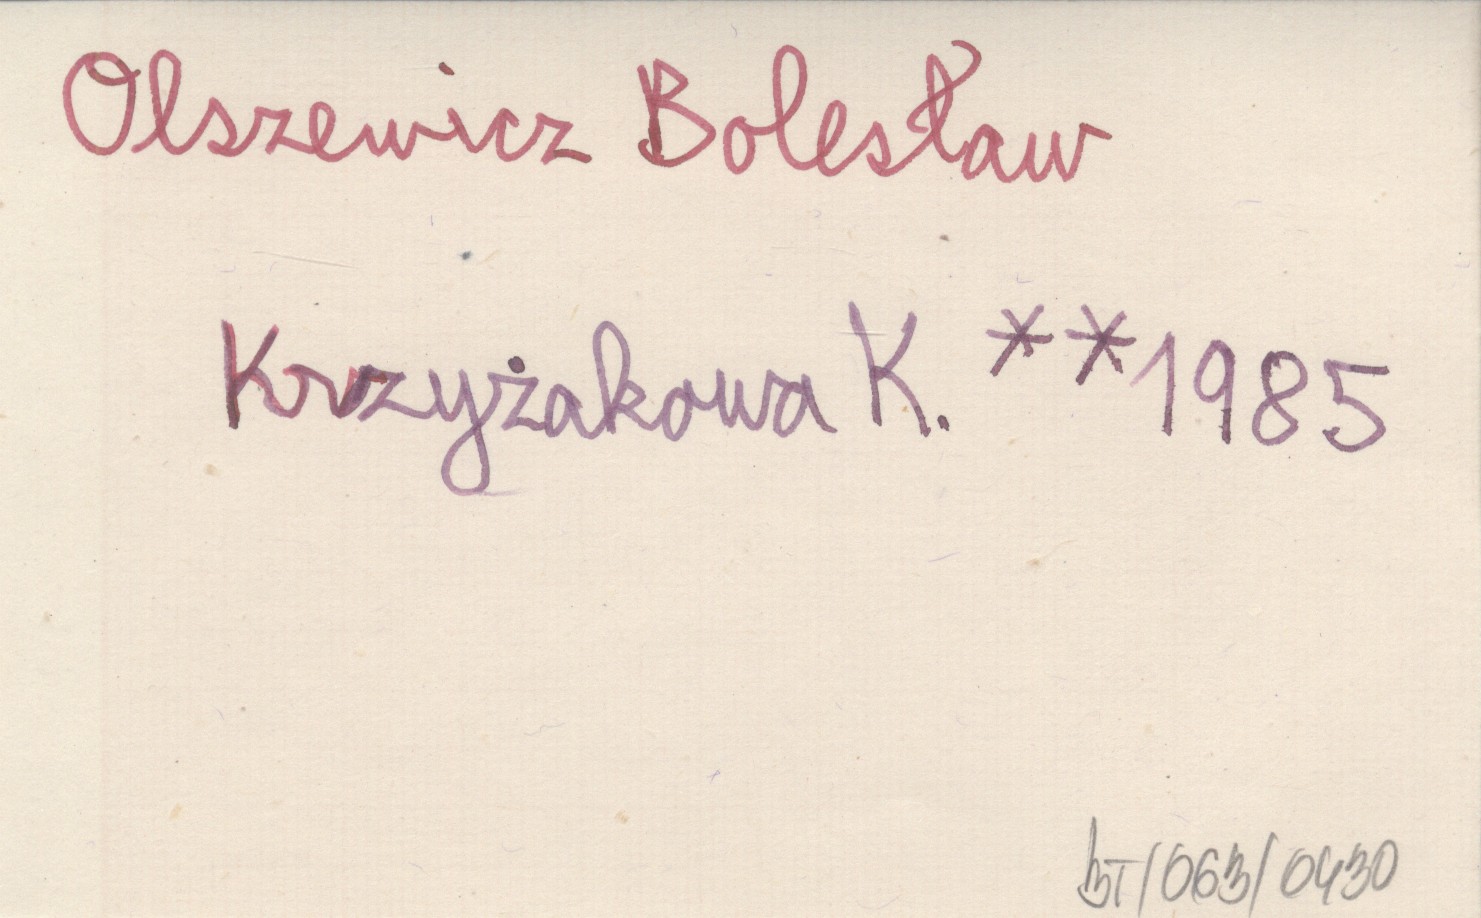 Olszewicz Bolesław
Krzyżakowa K. **1985
BT/063/0430